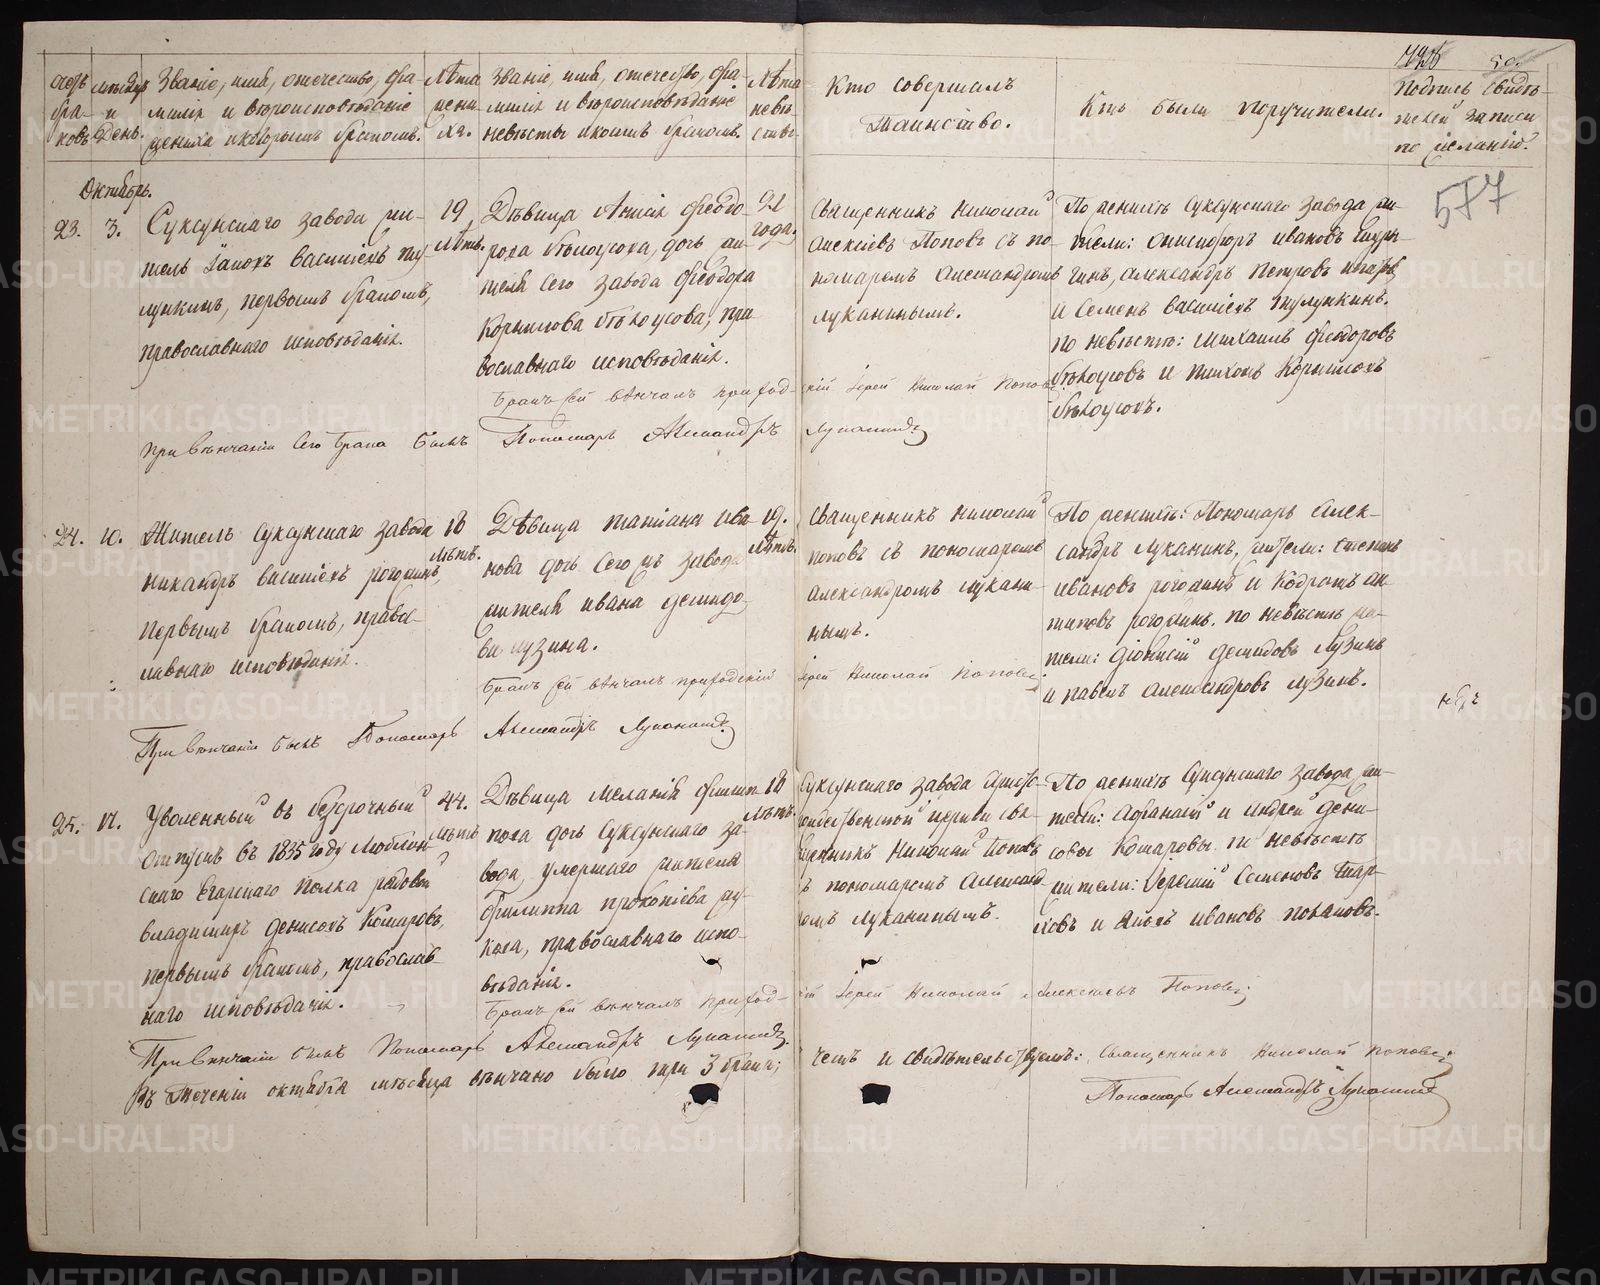 Счетъ бра- ковъ.
Мѣсяцъ и день.
Званіе, имя, отечество, фа-
милія и вѣроисповѣданіе
жениха и которымъ бракомъ.
Лѣта жени- ха.
Званіе, имя, отечество, фа-
милія и вѣроисповѣданіе
невѣсты и коимъ бракомъ.
Лѣта невѣ- сты.
Кто совершалъ
Таинство.
Кто были поручители.
Подпись свидѣ-
телей записи
по желанію.
577
Октябрь.
23. 3.
Суксунскаго завода жи-
тель Іаковъ Васильевъ
первымъ бракомъ,
православнаго исповѣданія.
19 лѣтъ.
Дѣвица Анисія Феодо-
рова Бѣлоусова, дочь жи-
теля сего завода Феодора
Корнилова Бѣлоусова, пра-
вославнаго исповѣданія.
21 года.
Священникъ Николай
Алексіевъ Поповъ съ по-
номаремъ Александромъ
Луканинымъ.
По женихѣ Суксунскаго завода жи-
тели: Онисифоръ Ивановъ
Александръ Петровъ
и Семенъ Васильевъ
по невѣстѣ: Михаилъ Феодоровъ
Бѣлоусовъ и Тихонъ Корниловъ
Бѣлоусовъ.
Бракъ сей вѣнчалъ приходскій Іерей Николай Поповъ
При вѣнчаніи сего брака былъ Пономарь Александръ Луканинъ
24. 10.
Житель Суксунскаго завода
Никандръ Васильевъ Рогожинъ,
первымъ бракомъ, право-
славнаго исповѣданія.
18 лѣтъ.
Дѣвица Татіана Ива-
нова дочь сего жъ завода
жителя Ивана Демидо-
ва Лузина.
19. лѣтъ.
Священникъ Николай
Поповъ съ пономаремъ
Александромъ Лукани-
нымъ.
По женихѣ: Пономарь Алек-
сандръ Луканинъ, жители: Степанъ
Ивановъ Рогожинъ и Кодратъ Ан-
типовъ Рогожинъ. По невѣстѣ жи-
тели: Діонисій Демидовъ Лузинъ
и Павелъ Александровъ Лузинъ.
Бракъ сей вѣнчалъ приходскій Іерей Николай Поповъ
При вѣнчаніи былъ Пономарь Александръ Луканинъ
25. 17.
Уволенный въ безсрочный
отпускъ въ 1835 году Люблин-
скаго Егарскаго полка рядовой
Владимиръ Денисовъ Комаровъ,
первымъ бракомъ, православ-
наго исповѣданія.
44. лѣтъ
Дѣвица Меланія Филип-
пова дочь Суксунскаго за-
вода, умершаго жителя
Филиппа Прокопіева
православнаго испо-
вѣданія.
18 лѣтъ.
Суксунскаго завода
церкви свя-
щенникъ Николай Поповъ
съ пономаремъ Александ-
ромъ Луканинымъ.
По женихѣ Суксунскаго завода жи-
тели: Афанасій и Андрей Дени-
совы Комаровы. По невѣстѣ
жители: Семеновъ
и Яковъ Ивановъ
Бракъ сей вѣнчалъ приходскій Іерей Николай Алексіевъ Поповъ
При вѣнчаніи былъ Пономарь Александръ Луканинъ
Въ теченіи октября мѣсяца вѣнчано было три 3 брака; чемъ и свидѣтельствуемъ: Священникъ Николай Поповъ
Пономарь Александръ Луканинъ
METRIKI.GASO-URAL.RU